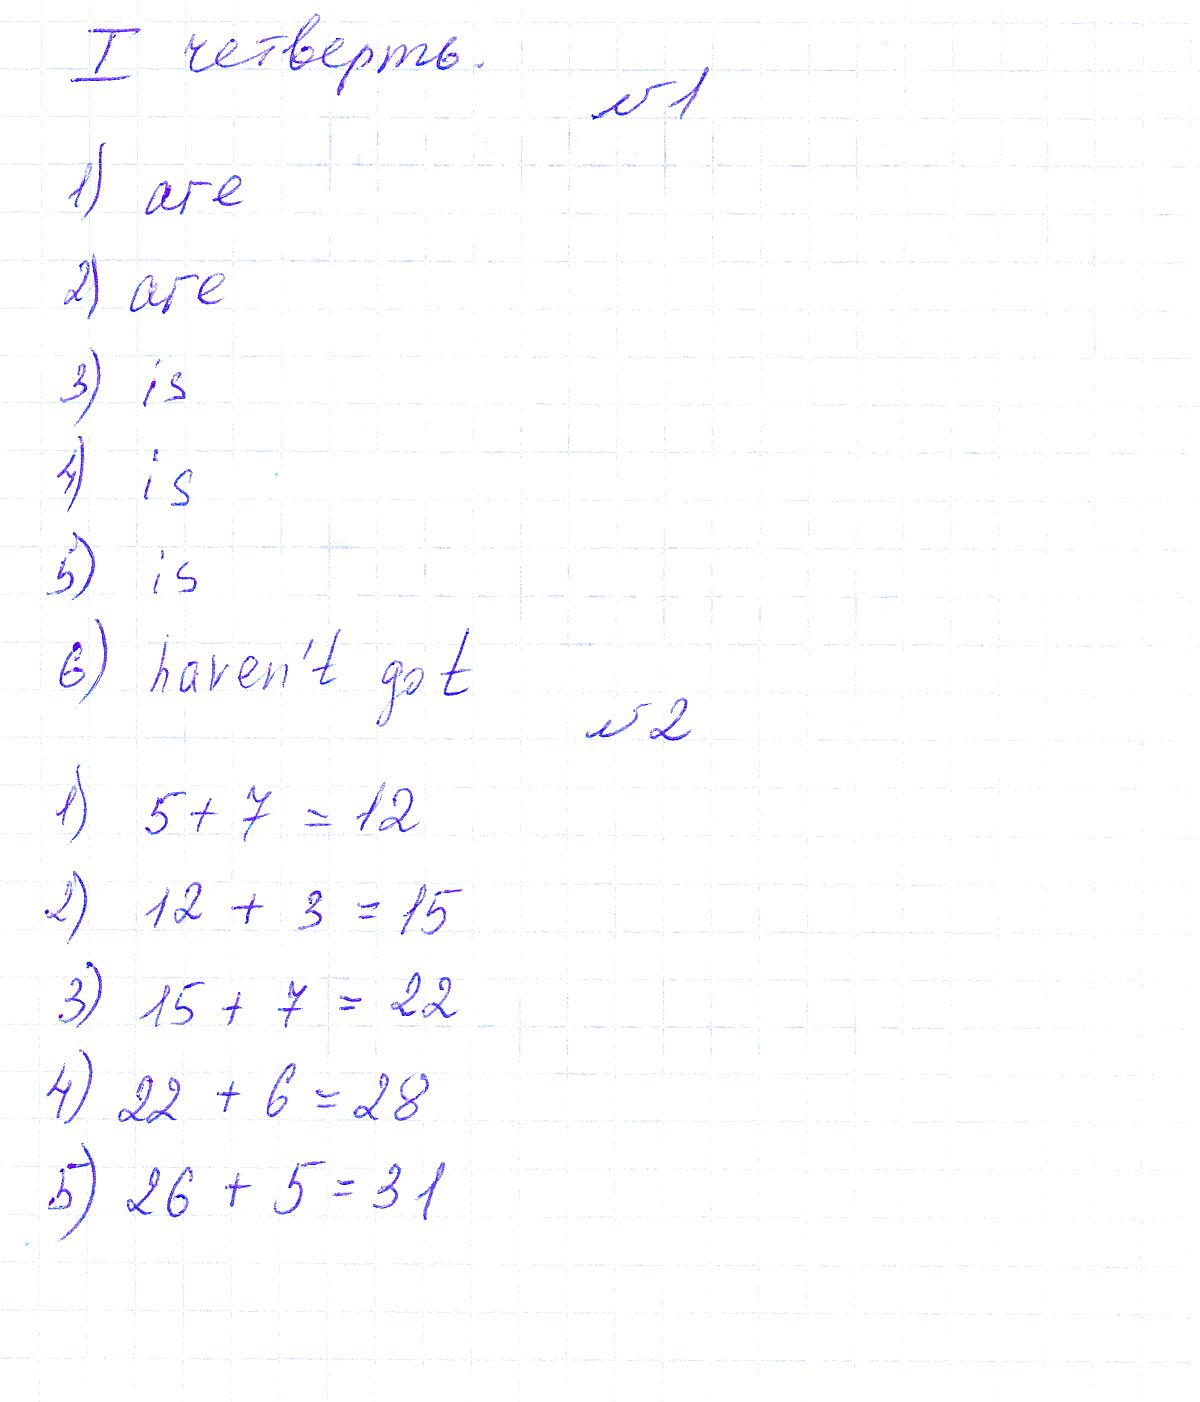 I четверть.
№1
1) are
2) are
3) is
4) is
5) is
6) haven't got
№2
1) 5 + 7 = 12
2) 12 + 3 = 15
3) 15 + 7 = 22
4) 22 + 6 = 28
5) 26 + 5 = 31